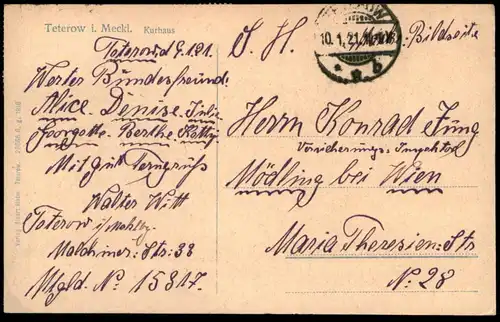 Teterow i. Meckl. Kurhaus
Teterow d 9.1.21.
Werter Bundesfreund
Alice - Denise - Julie
Georgette - Berthe - Ketty
Mit gut Ferngruß
Walter Witt
Teterow i/Mecklbg.
Malchiner-Str: 38
Mtgld. No: 15817.
10. 1. 21.
S. H. Bildseite
Herrn Konrad Jung
Versicherungs-Inspektor
Mödling bei Wien
Maria Theresien-Str
No. 28